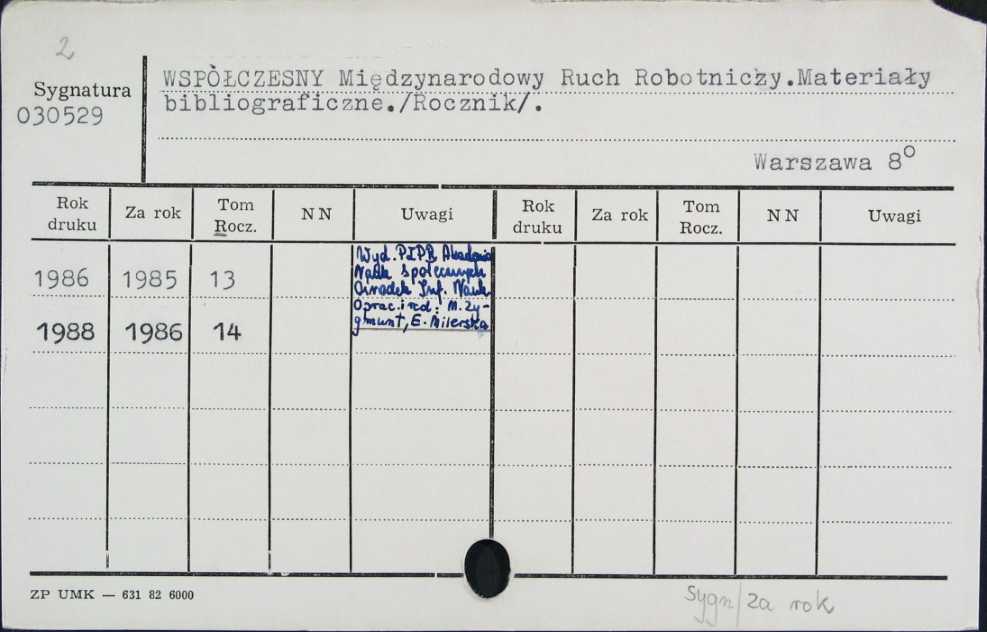 2
Sygnatura
030529
WSPÒŁCZESNY Międzynarodowy Ruch Robotniczy.Materiały
bibliograficzne./Rocznik/.
Warszawa 8°
Rok druku Za rok Tom Rocz. NN Uwagi Rok druku Za rok Tom Rocz. NN Uwagi
1986 1985 13
Wyd. PZPR Akademia
Nauk Społecznych
Ośrodek Inf. Nauk
Oprac. i red: M. Zy-
gmunt, E. Milerska
1988 1986 14
ZP UMK — 631 82 6000
Sygn/za rok